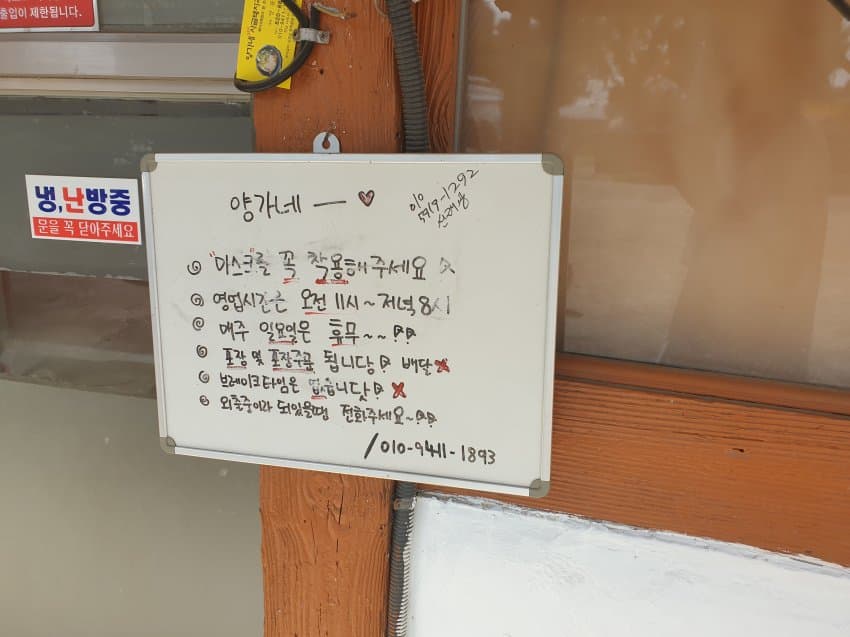 출입이 제한됩니다.
냉,난방중
문을 꼭 닫아주세요
양가네 — ♥
010
5919-1292
"마스크"를 꼭 착용해주세요
영업시간은 오전 11시~저녁 8시
매주 일요일은 휴무~~!!
포장 및 포장주문 됩니당! 배달 X
브레이크타임은 없습니닷! X
외출중이라 되있을땐 전화주세요~!!
/010-9411-1893